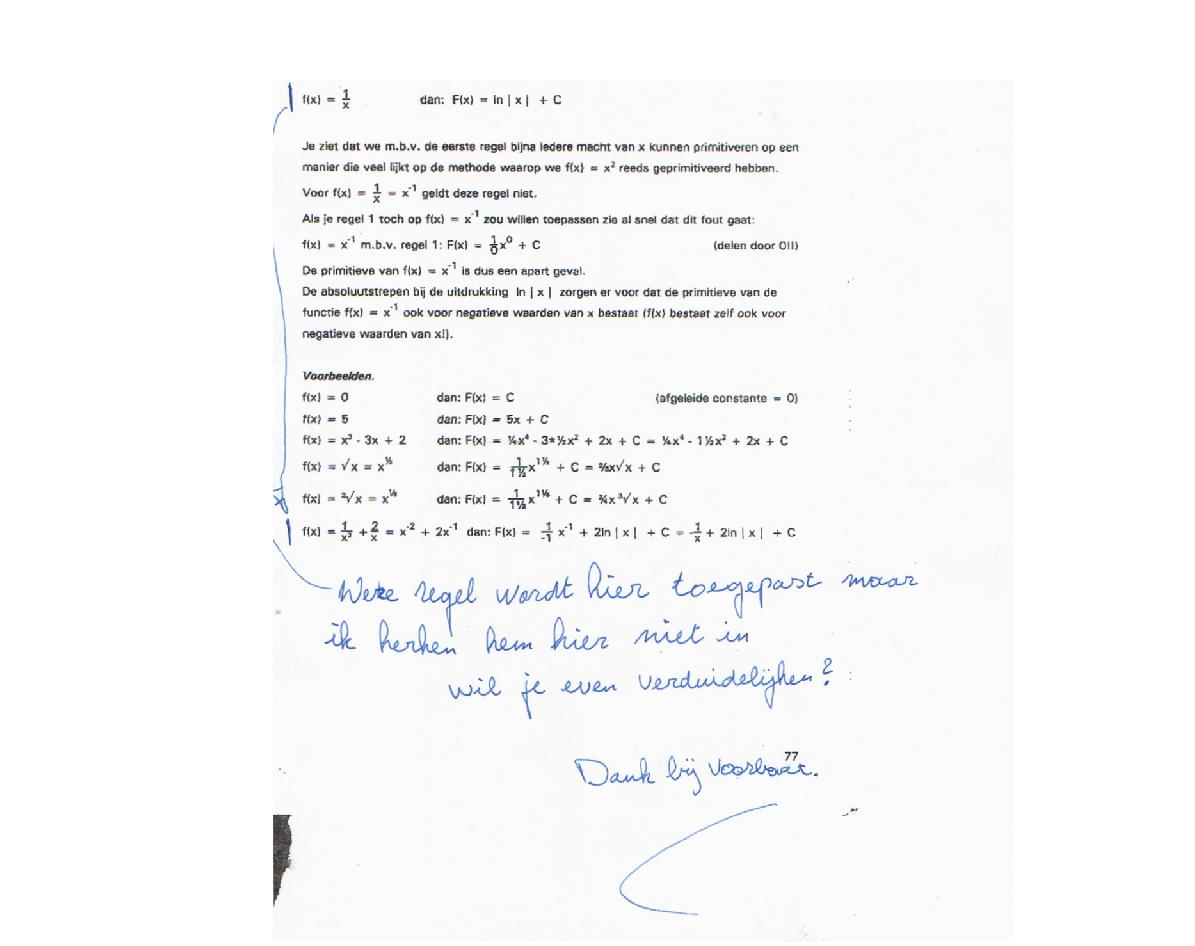 f(x) = 1/x dan: F(x) = ln | x | + C
Je ziet dat we m.b.v. de eerste regel bijna iedere macht van x kunnen primitiveren op een
manier die veel lijkt op de methode waarop we f(x) = x² reeds geprimitiveerd hebben.
Voor f(x) = 1/x = x⁻¹ geldt deze regel niet.
Als je regel 1 toch op f(x) = x⁻¹ zou willen toepassen zie al snel dat dit fout gaat:
f(x) = x⁻¹ m.b.v. regel 1: F(x) = 1/0 x⁰ + C (delen door 0!!)
De primitieve van f(x) = x⁻¹ is dus een apart geval.
De absoluutstrepen bij de uitdrukking ln | x | zorgen er voor dat de primitieve van de
functie f(x) = x⁻¹ ook voor negatieve waarden van x bestaat (f(x) bestaat zelf ook voor
negatieve waarden van x!).
Voorbeelden.
f(x) = 0 dan: F(x) = C (afgeleide constante = 0)
f(x) = 5 dan: F(x) = 5x + C
f(x) = x³ - 3x + 2 dan: F(x) = ¼x⁴ - 3*½x² + 2x + C = ¼x⁴ - 1½x² + 2x + C
f(x) = √x = x^½ dan: F(x) = 1/1½ x^1½ + C = ⅔x√x + C
f(x) = ³√x = x^⅓ dan: F(x) = 1/1⅓ x^1⅓ + C = ¾x ³√x + C
f(x) = 1/x² + 2/x = x⁻² + 2x⁻¹ dan: F(x) = 1/-1 x⁻¹ + 2ln | x | + C = -1/x + 2ln | x | + C
Welke regel wordt hier toegepast maar
ik herken hem hier niet in
wil je even verduidelijken?
77
Dank bij voorbaat.